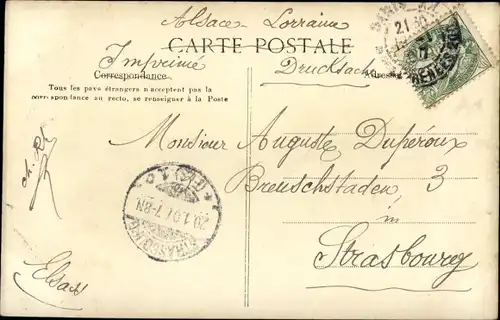 Alsace - Lorraine
CARTE POSTALE
Imprimé
Drucksache
Correspondance
Adresse
Tous les pays étrangers n'acceptent pas la
correspondance au recto, se renseigner à la Poste
Monsieur Auguste Dupéroux
Breuschstaden 3
in
Strasbourg
Elsass
PARIS
21 30
STRASSBURG
20.1.07.7-8N